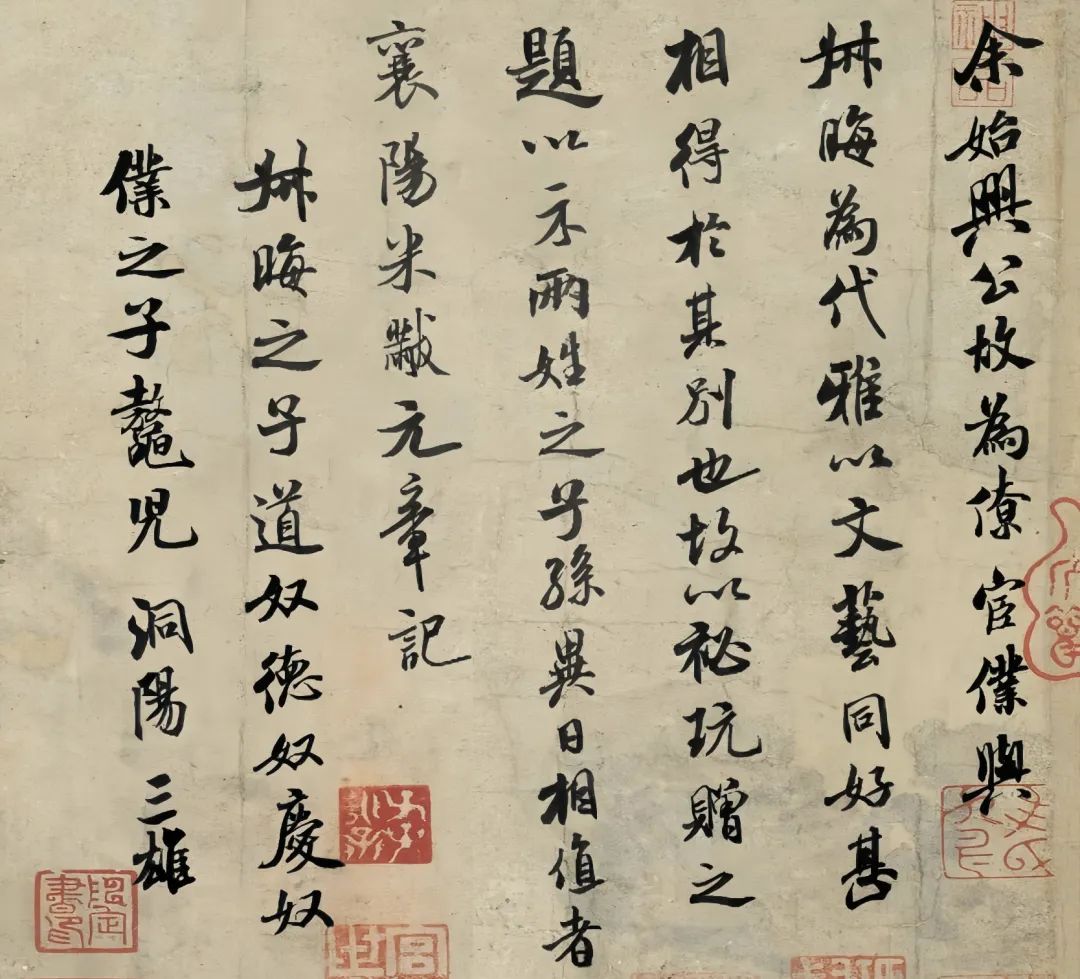 余始興公故為僚宦僕與
叔晦為代雅以文藝同好甚
相得於其別也故以祕玩贈之
題以示兩姓之子孫異日相值者
襄陽米黻元章記
叔晦之子道奴德奴慶奴
僕之子鼇兒洞陽三雄